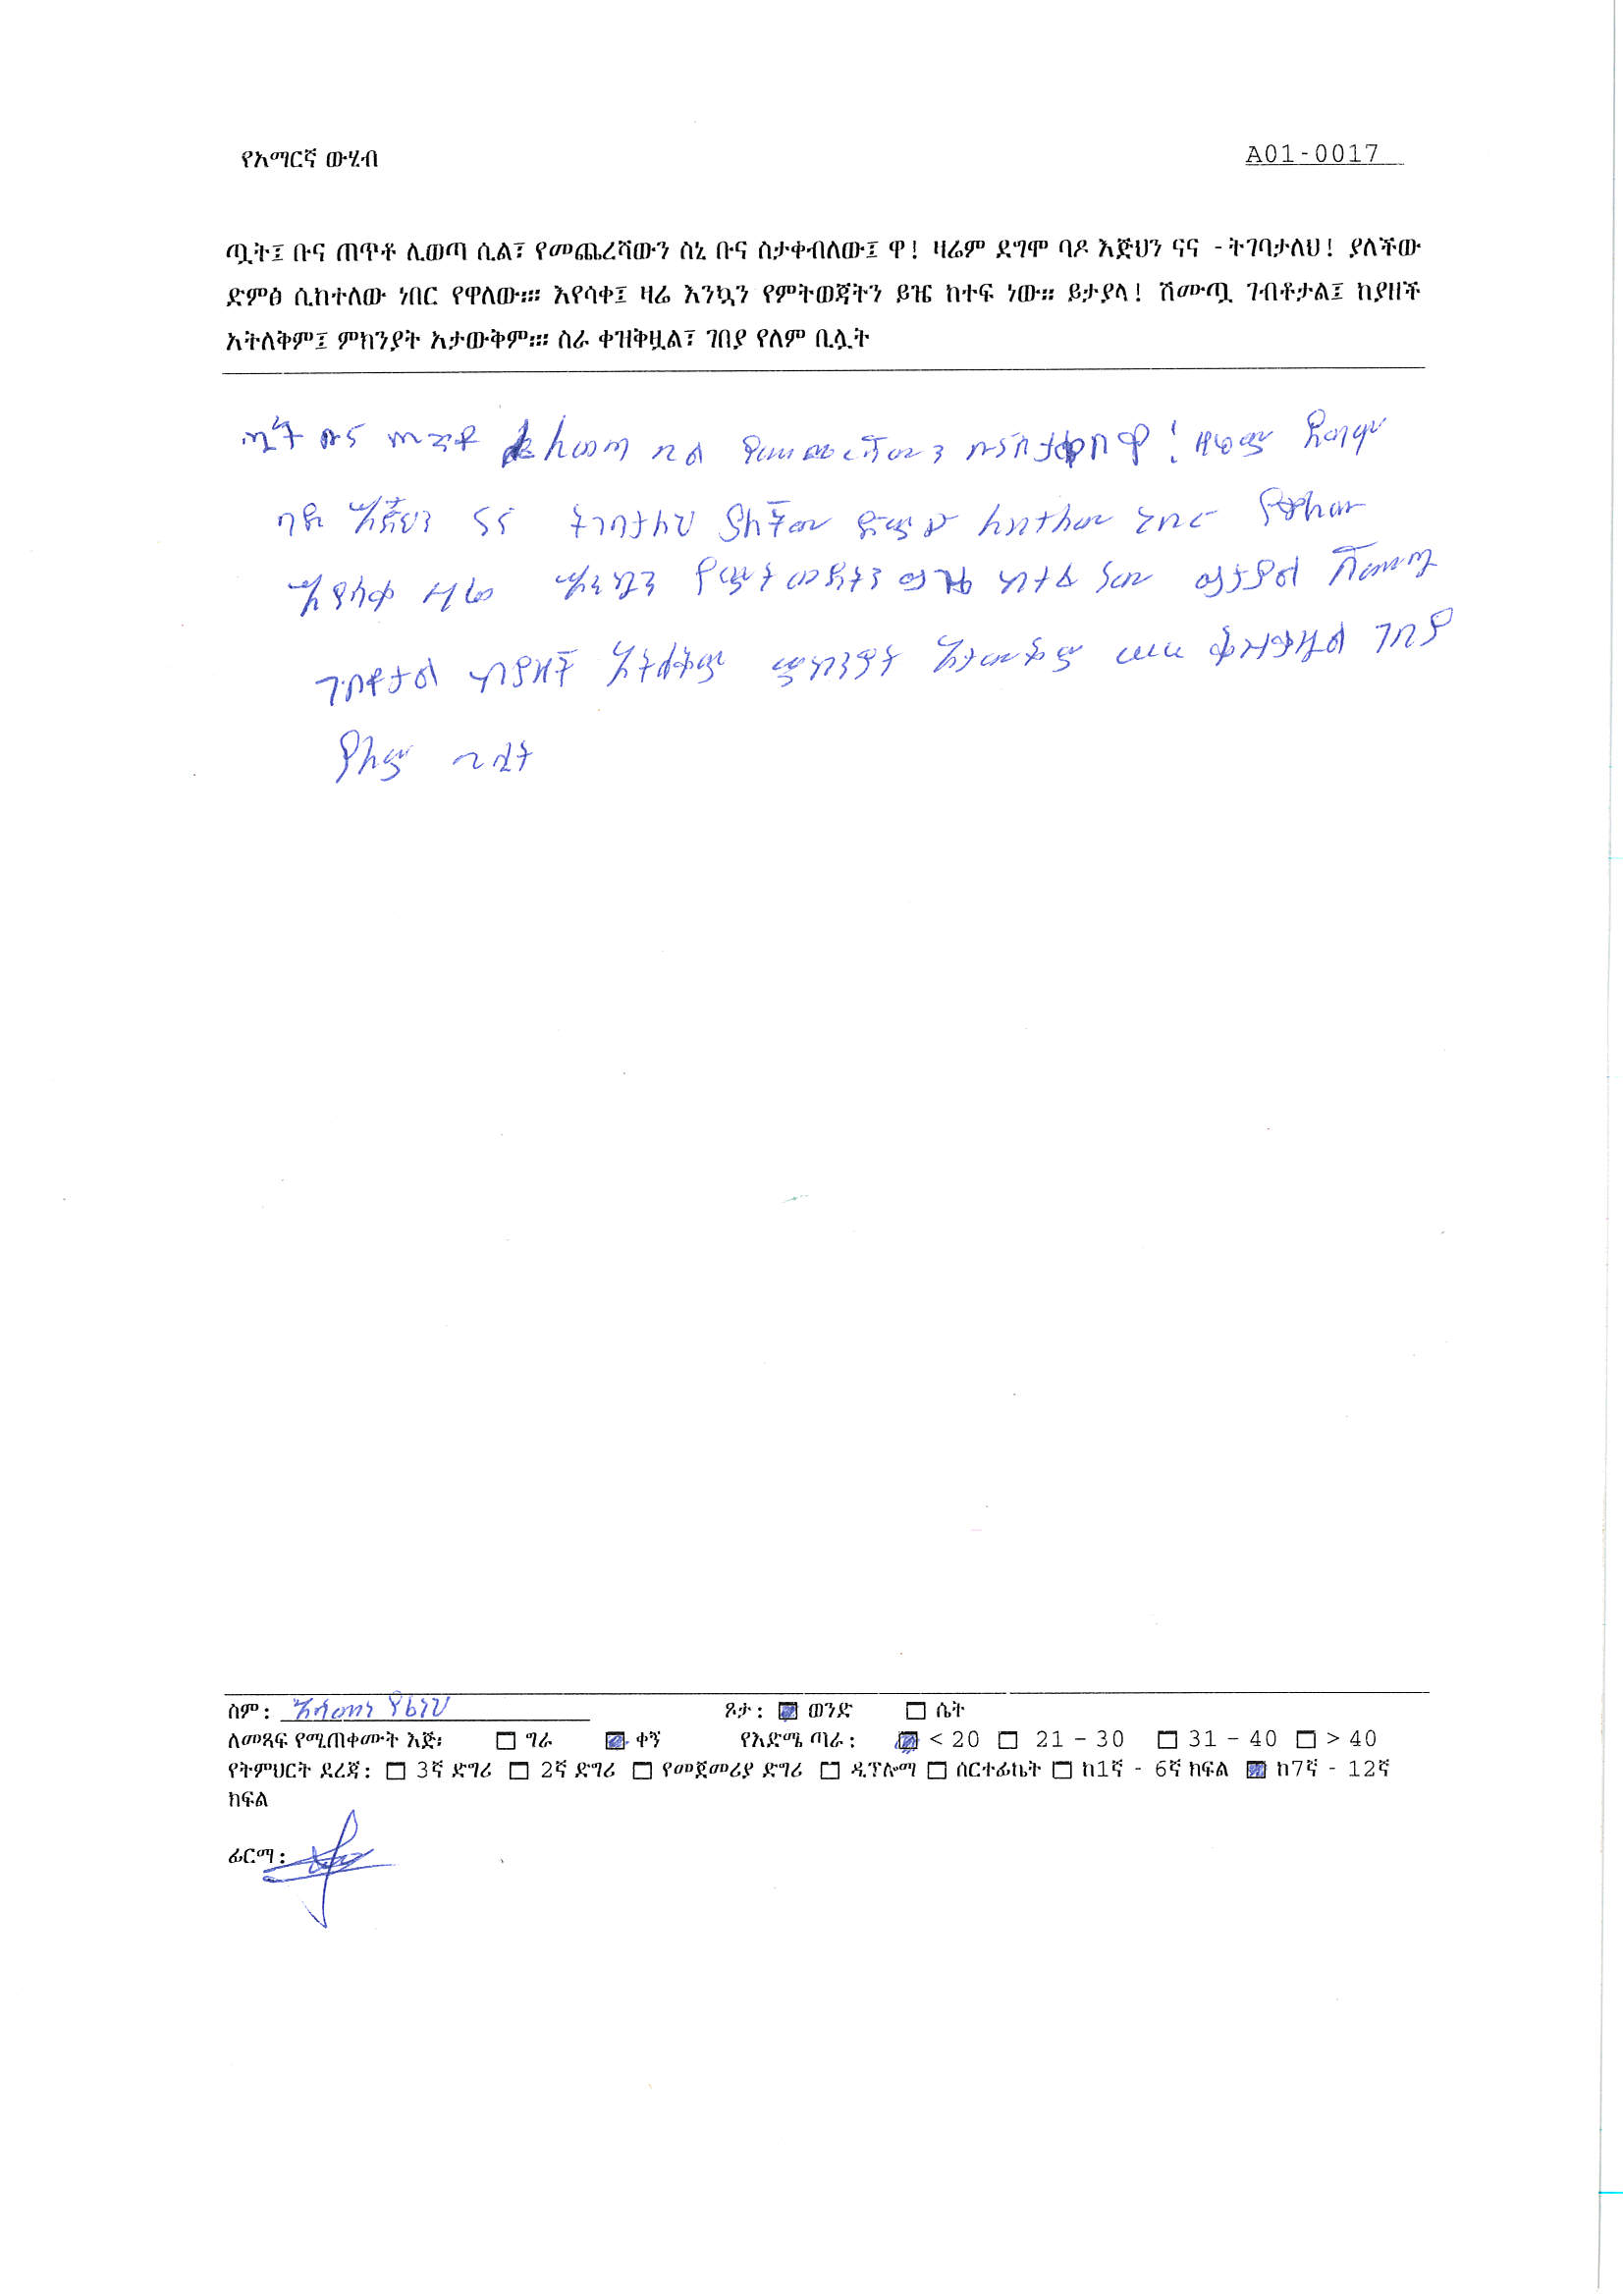 የአማርኛ ውሂብ A01-0017
ጧት፤ ቡና ጠጥቶ ሊወጣ ሲል፣ የመጨረሻውን ስኒ ቡና ስታቀብለው፤ ዋ! ዛሬም ደግሞ ባዶ እጅህን ናና -ትገባታለህ! ያለችው
ድምፅ ሲከተለው ነበር የዋለው።። እየሳቀ፤ ዛሬ እንኳን የምትወጃትን ይዤ ከተፍ ነው። ይታያላ! ሽሙጧ ገብቶታል፤ ከያዘች
አትለቅም፤ ምክንያት አታውቅም።። ስራ ቀዝቅዟል፣ ገበያ የለም ቢሏት
ጧት ቡና ጠጥቶ ሊወጣ ሲል ዋ! ዛሬም ደግሞ
ባዶ እጅህን ናና ትገባታለህ ያለችው ድምፅ ነበር የዋለው
እያሳቀ ዛሬ እንኳን ይዤ ከተፍ ነው ይታያል ሽሙጧ
ገብቶታል ከያዘች አትለቅም ምክንያት አታውቅም ቀዝቅዟል ገበያ
የለም ቢሏት
ስም: ጾታ: ወንድ ሴት
ለመጻፍ የሚጠቀሙት እጅ፡ ግራ ቀኝ የእድሜ ጣራ: < 20 21 - 30 31 - 40 > 40
የትምህርት ደረጃ: 3ኛ ድግሪ 2ኛ ድግሪ የመጀመሪያ ድግሪ ዲፕሎማ ሰርተፊኬት ከ1ኛ - 6ኛ ክፍል ከ7ኛ - 12ኛ
ክፍል
ፊርማ: